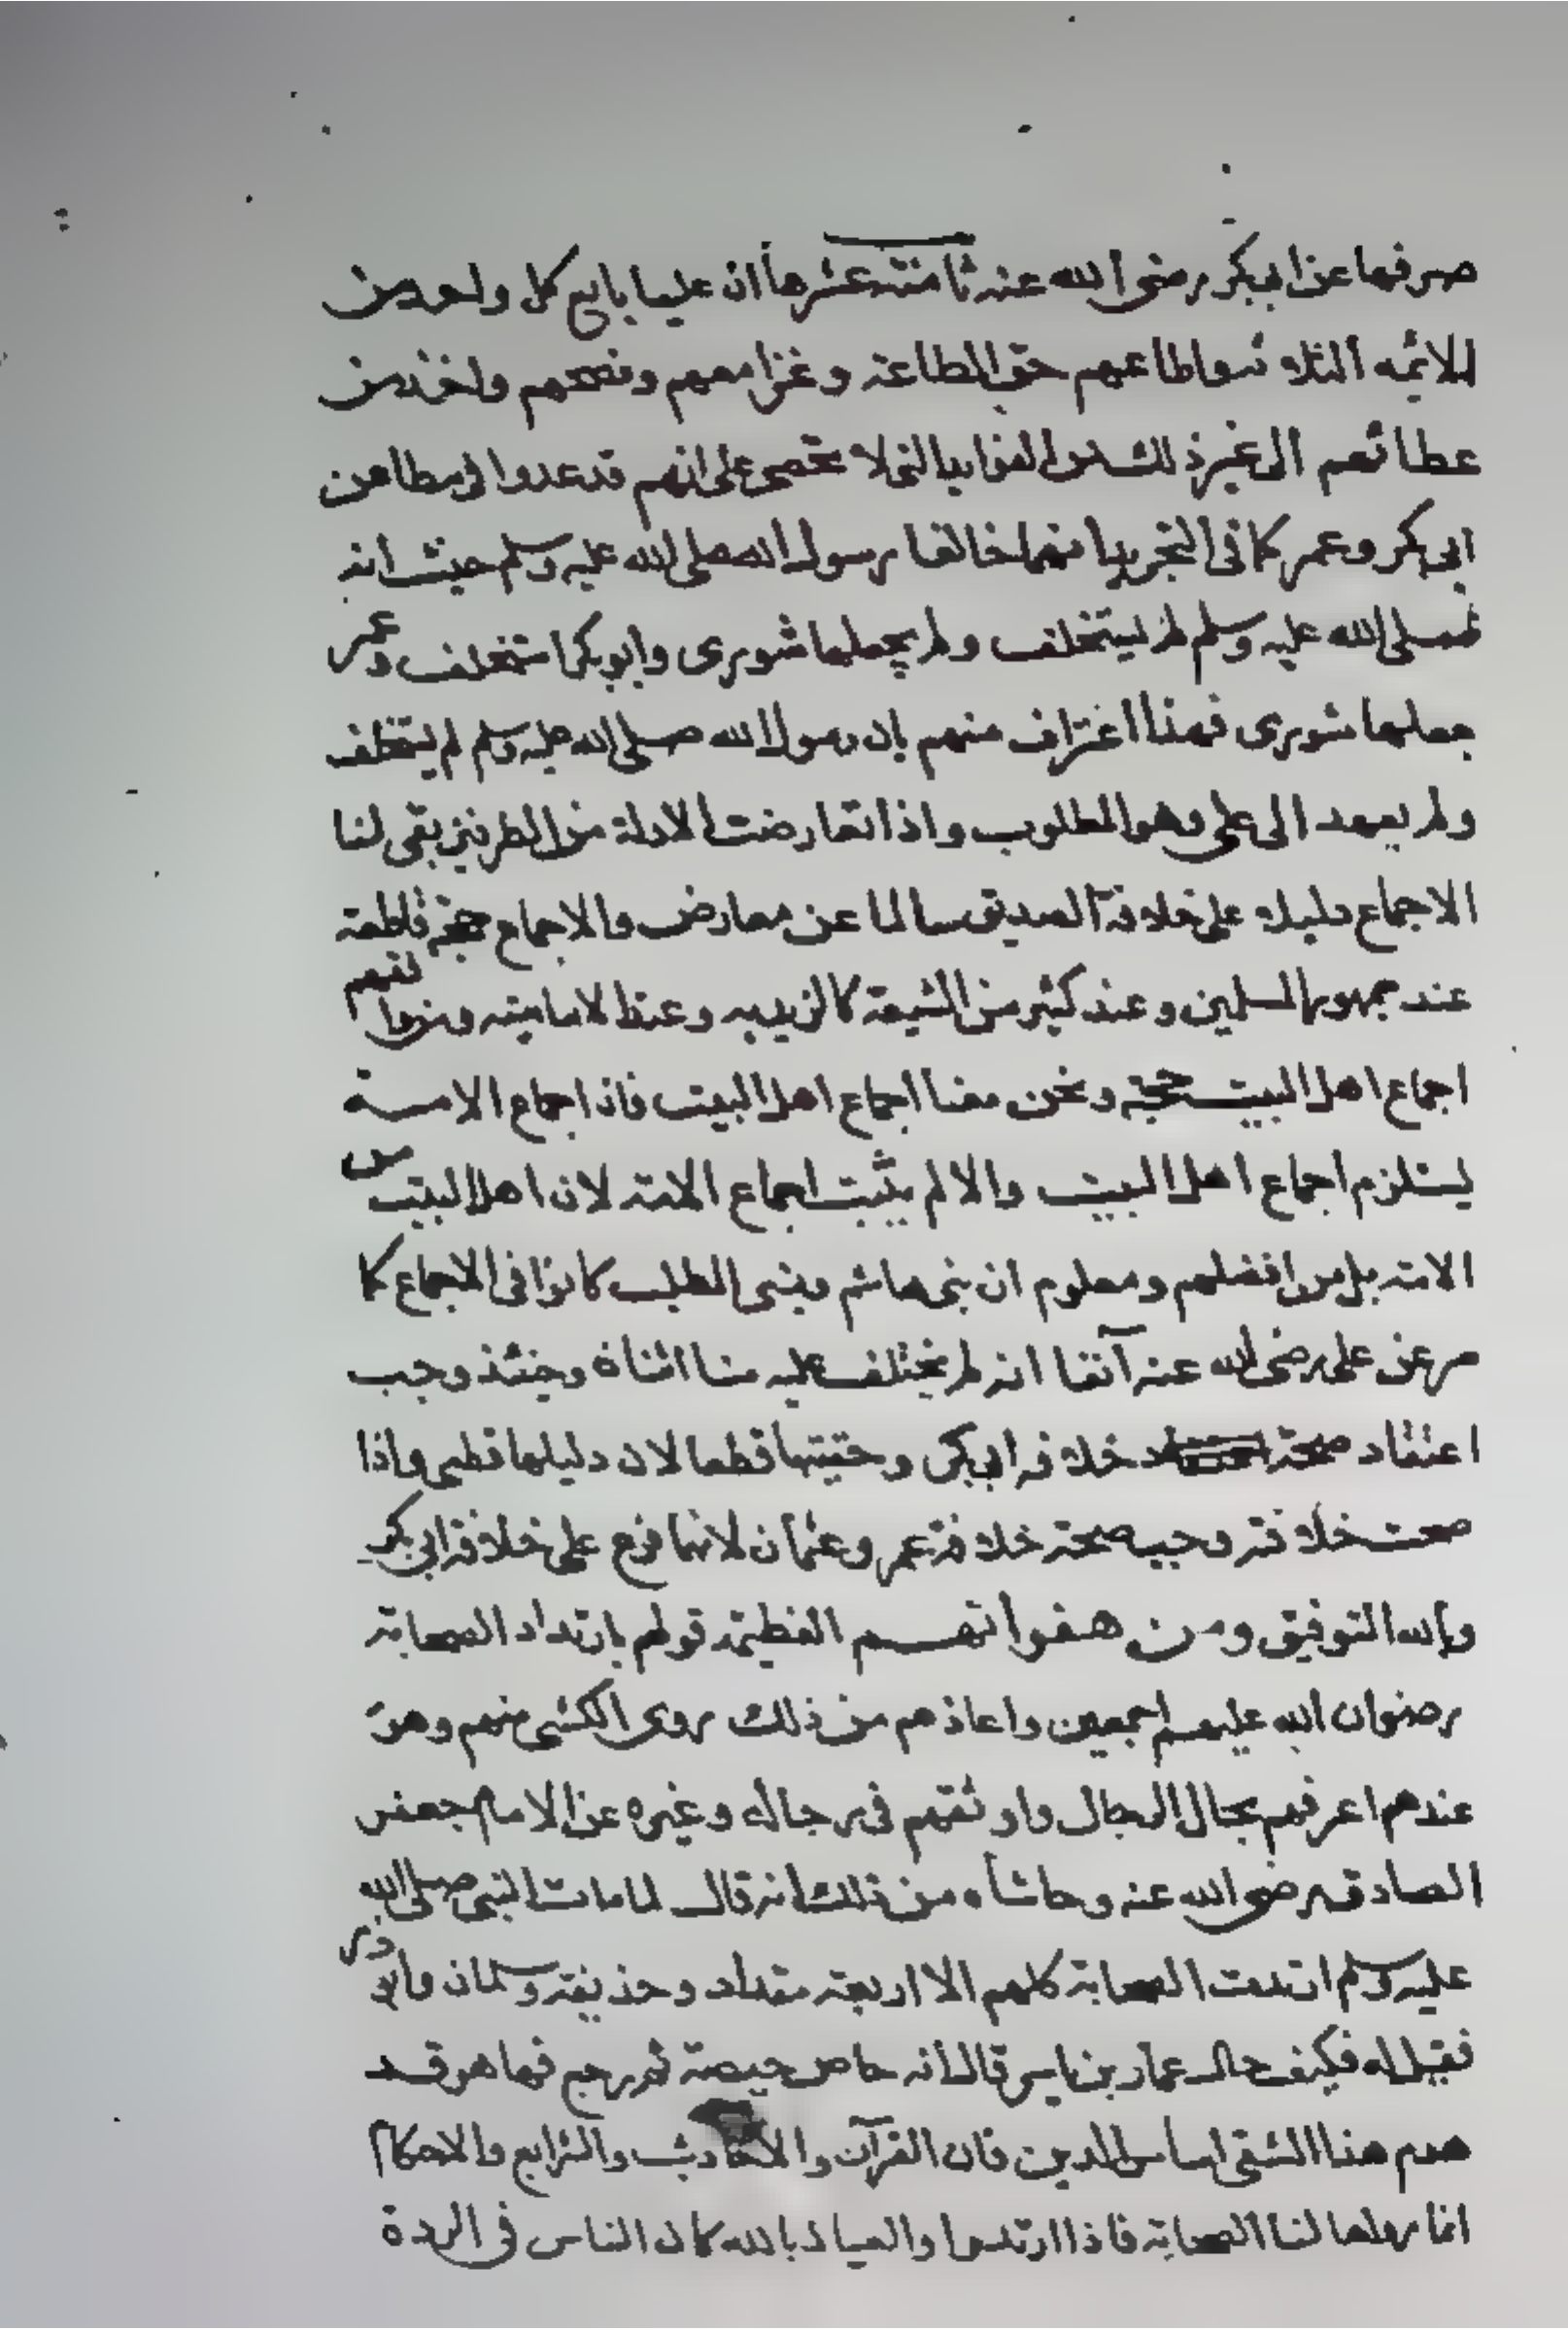 صرفها عن ابي بكر رضي الله عنه ثامنة عشرها ان عليا بايع كل واحد من
الائمه الثلاثة واطاعهم حق الطاعة وغزا معهم ونصحهم واخذ من
عطائهم الى غير ذلك من التي لا تحصى على انهم قد عدوا في مطاعن
ابي بكر وعمر كما في التجريد انهما خالفا رسول الله صلى الله عليه وسلم حيث انه
صلى الله عليه وسلم لم يستخلف ولم يجعلها شورى وابو بكر استخلف وعمر
جعلها شورى فهذا اعتراف منهم بان رسول الله صلى الله عليه وسلم لم يستخلف
ولم يعهد الى علي وهو المطلوب واذا تعارضت الادلة من الطرفين بقي لنا
الاجماع دليلا على خلافة الصديق سالما عن معارض والاجماع حجة قاطعة
عند جمهور المسلمين وعند كثير من الشيعة كالزيديه وعند الاماميته ومنهم
اجماع اهل البيت حجة ونحن معنا اجماع اهل البيت فان اجماع الامة
يستلزم اجماع اهل البيت والا لم يثبت اجماع الامة لان اهل البيت من
الامة بل من افضلهم ومعلوم ان بني هاشم وبني المطلب كانوا في الاجماع كما
مر عن علي رضي الله عنه آنفا انه لم يختلف عليه منا اثنان وحينئذ وجب
اعتقاد صحة خلافة ابي بكر وحقيتها قطعا لان دليلها قطعي واذا
صحت خلافته وجب صحة خلافة عمر وعثمان لانهما فرع على خلافة ابي بكر
وبالله التوفيق ومن هفواتهم الفظيعة قولهم بارتداد الصحابة
رضوان الله عليهم اجمعين واعاذهم من ذلك روى الكشي منهم وهو
عندهم اعرفهم بحال الرجال واوثقهم في رجاله وغيره عن الامام جعفر
الصادق رضي الله عنه وحاشاه من ذلك انه قال لما مات النبي صلى الله
عليه وسلم ارتدت الصحابة كلهم الا اربعة مقداد وحذيفة وسلمان وابو ذر
فقيل له فكيف حال عمار بن ياسر قال انه حاص حيصة ثم رجع فها هو قد
هدم هذا الشقي اساس الدين فان القرآن والاحاديث والشرايع والاحكام
انما رواها لنا الصحابة فاذا ارتدوا والعياذ بالله كان الناس في الردة